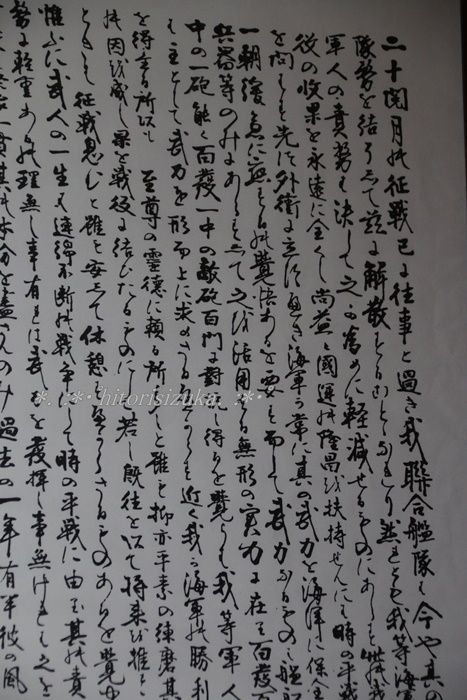 二十閲月の征戦已に往事と過ぎ我聯合艦隊は今や其の
隊務を結了して茲に解散することとなれり然れども我等海
軍人の責務は決して之が為めに軽減せるものにあらず此
役の収果を永遠に全くし尚益々國運の隆昌を扶持せんには時の平戦
を問はず先づ外衝に立つべき海軍が常に其の武力を海洋に保全
一朝緩急に應ずるの覚悟あるを要す而して武力なるものは艦船
兵器等のみにあらずして之を活用する無形の実力に在り百發百
中の一砲能く百發一中の敵砲百門に對抗し得るを覚らば我等軍人
は主として武力を形而上に求めざるべからず近く我が海軍の勝利
を得たる所以も 至尊の霊徳に頼る所多しと雖も抑亦平素の練磨其
の因を成し果を戦役に結びたるものにして若し既往を以て将来を推
ときは征戦息むと雖も安じて休憩す可からざるものあるを覚ゆ
惟ふに武人の一生は連綿不断の戦争にして時の平戦に由り其の責
務に軽重あるの理無し事有れば武力を發揮し事無ければ之を
終始一貫其の本分を盡さんのみ過去の一年有半彼の風
hitorisizuka.